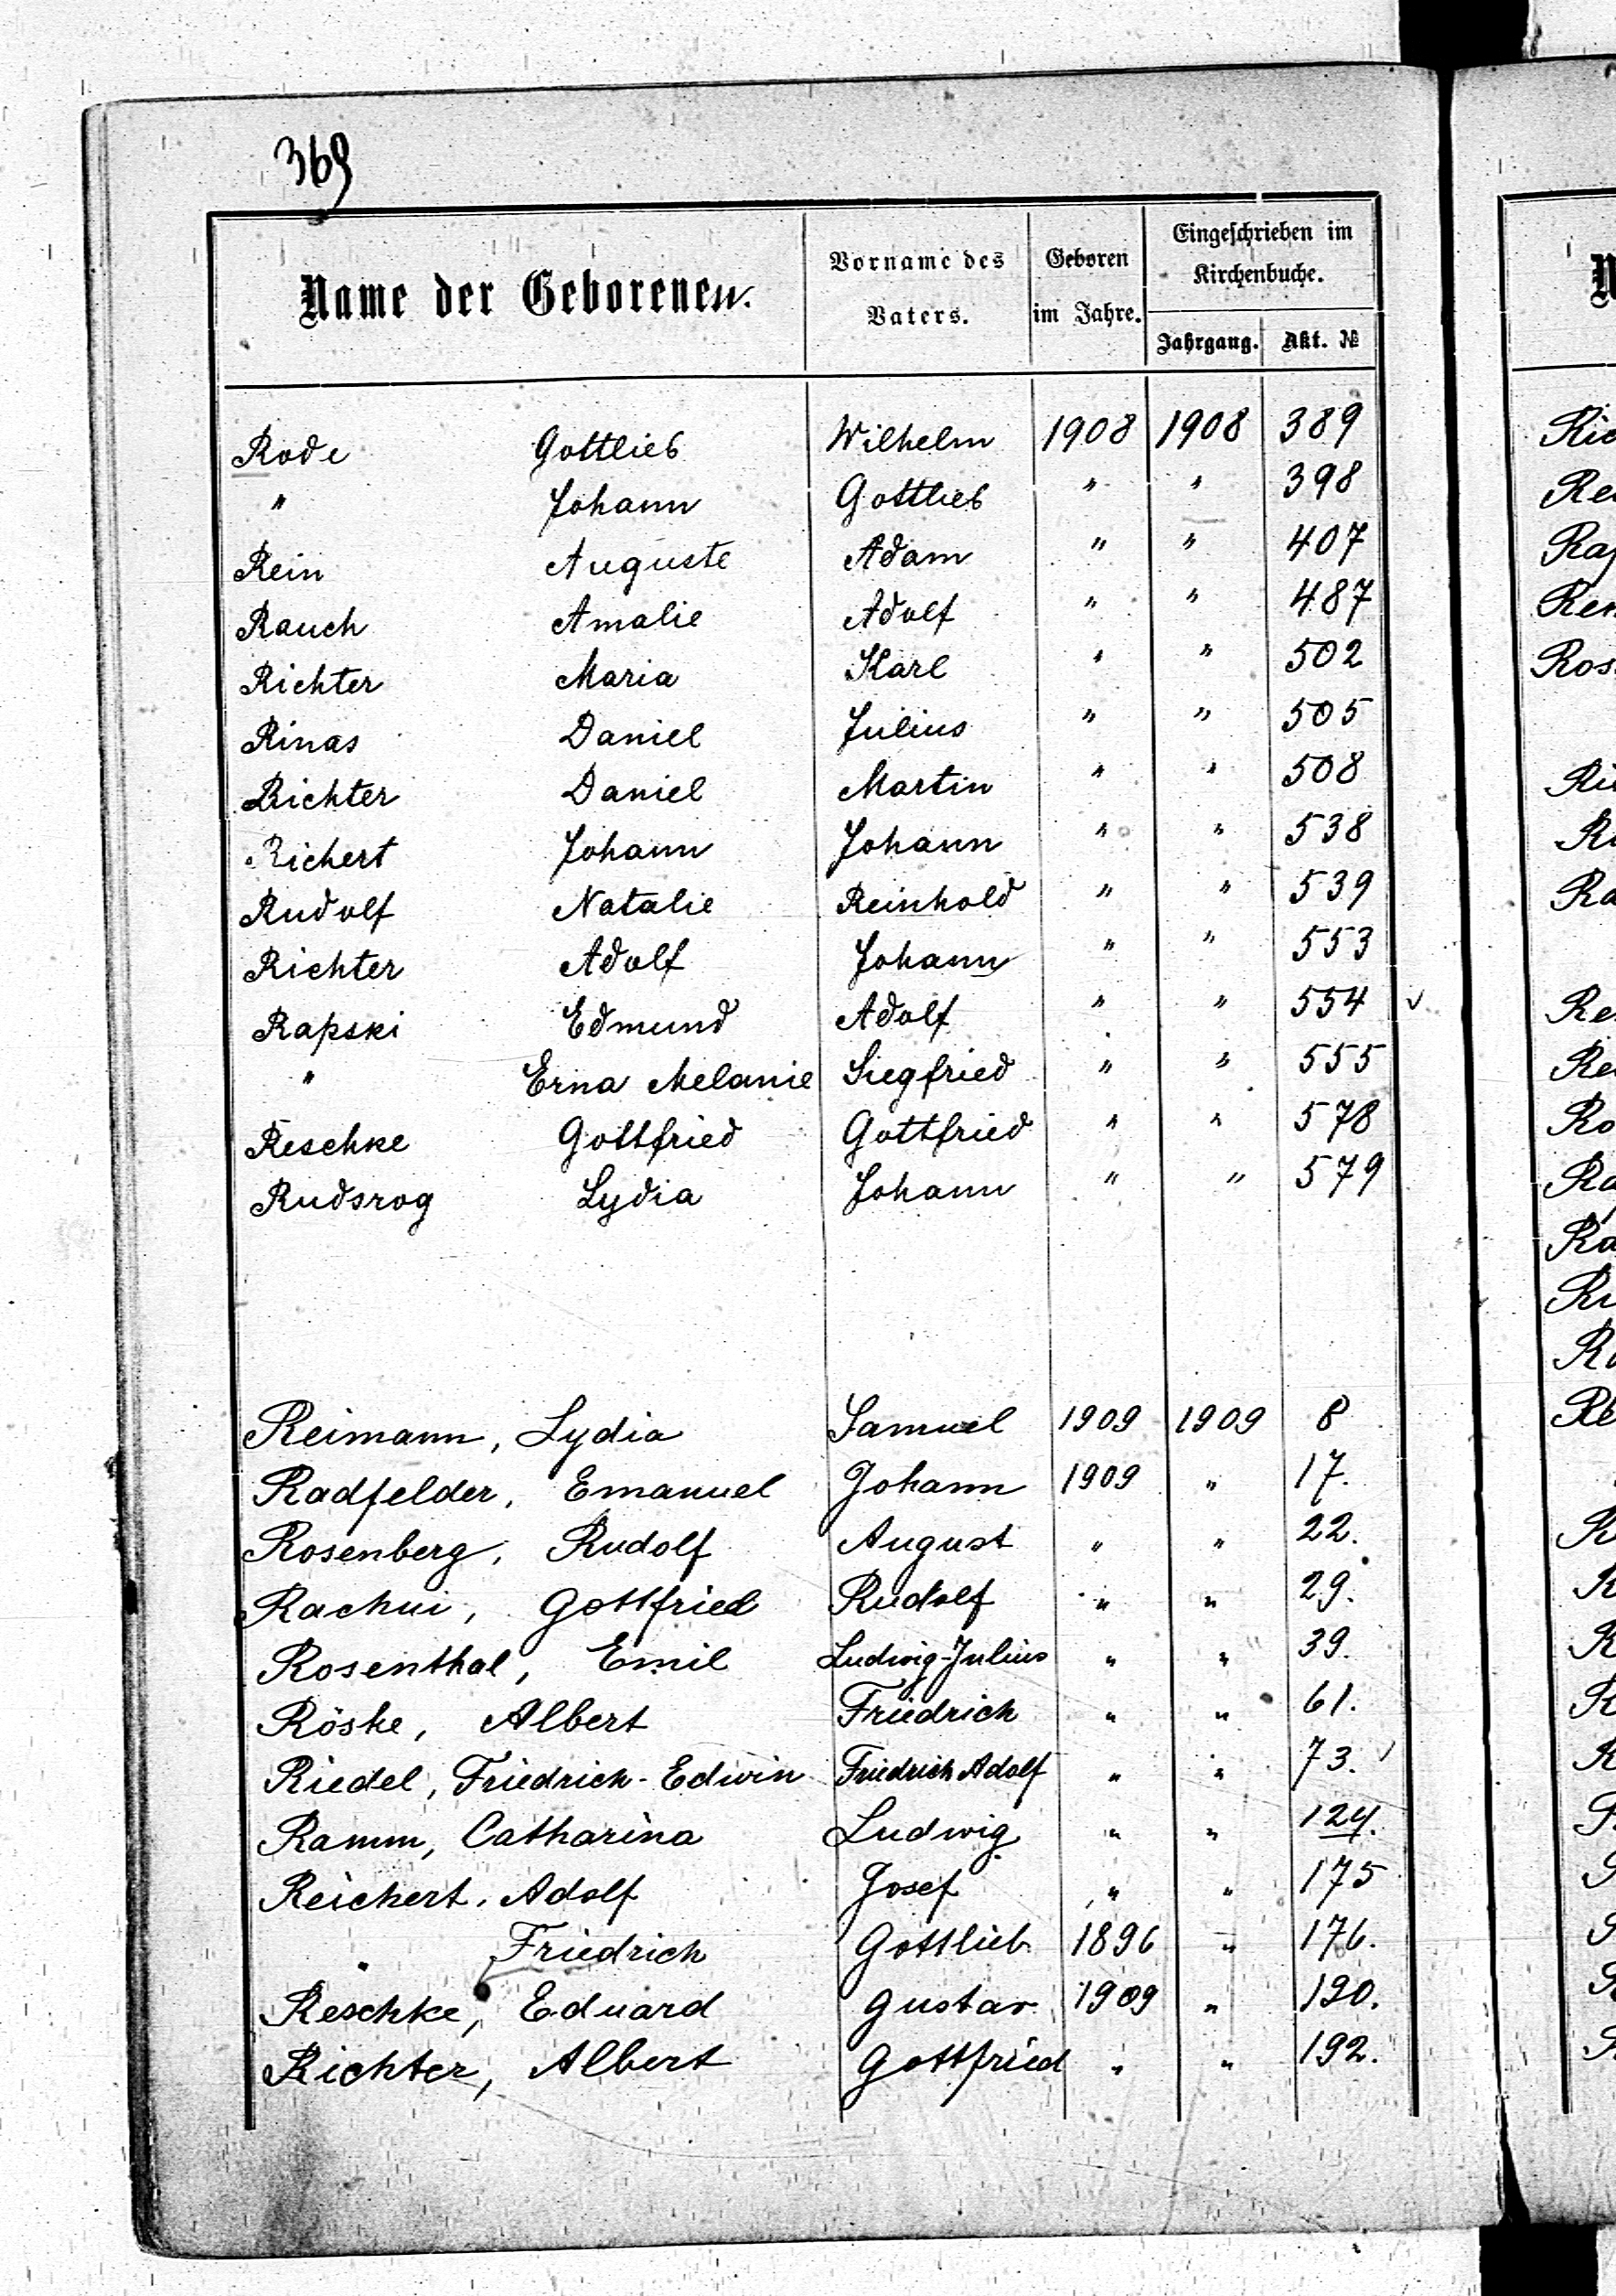 369
Name der Geborenen.
Vorname des Vaters.
Geboren im Jahre.
Eingeschrieben im Kirchenbuche.
Jahrgang. Akt. №
Rode Gottlieb Wilhelm 1908 1908 389
" Johann Gottlieb " " 398
Rein Auguste Adam " " 407
Rauch Amalie Adolf " " 487
Richter Maria Karl " " 502
Rinas Daniel Julius " " 505
Richter Daniel Martin " " 508
Richert Johann Johann " " 538
Rudolf Natalie Reinhold " " 539
Richter Adolf Johann " " 553
Rapski Edmund Adolf " " 554 ✓
" Erna Melanie Siegfried " " 555
Reschke Gottfried Gottfried " " 578
Rudsrog Lydia Johann " " 579
Reimann, Lydia Samuel 1909 1909 8
Radfelder, Emanuel Johann 1909 " 17.
Rosenberg, Rudolf August " " 22.
Rachui, Gottfried Rudolf " " 29.
Rosenthal, Emil Ludwig-Julius " " 39.
Röske, Albert Friedrich " " 61.
Riedel, Friedrich-Edwin Friedrich Adolf " " 73. ✓
Ramm, Catharina Ludwig " "
Reichert, Adolf Josef " " 175
" Friedrich Gottlieb 1896 " 176.
Reschke, Eduard Gustav 1909 " 190.
Richter, Albert Gottfried " " 192.